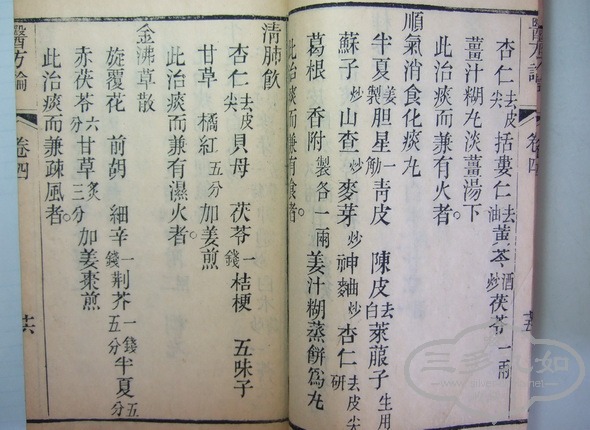 杏仁去皮尖 括蔞仁去油 黃芩酒炒 茯苓一兩
薑汁糊丸淡薑湯下
此治痰而兼有火者。
順氣消食化痰丸
半夏姜製 胆星一觔 靑皮 陳皮去白 萊菔子生用
蘇子炒 山查炒 麥芽炒 神麯炒 杏仁去皮尖研
葛根 香附製各一兩 姜汁糊蒸餅爲丸
此治痰而兼有食者。
醫方論 卷四 十六
淸肺飮
杏仁去皮尖 貝母 茯苓一錢 桔梗 五味子
甘草 橘紅五分 加姜煎
此治痰而兼有濕火者。
金沸草散
旋覆花 前胡 細辛一錢 荆芥一錢五分 半夏五分
赤茯苓六分 甘草炙三分 加姜棗煎
此治痰而兼疎風者。
醫方論 卷四